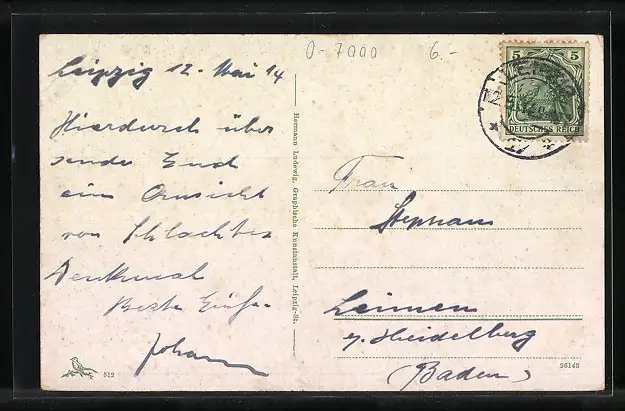 0-7000
6.-
Leipzig 12. Mai 14
Hierdurch über
sende Euch
eine Ansicht
von Schlachten
Denkmal
Beste Grüße
Johann
512
Hermann Ludewig, Graphische Kunstanstalt, Leipzig-St.
5 5
DEUTSCHES REICH
LEIPZIG
Frau
Stephan
Leimen
b/ Heidelberg
(Baden)
26145